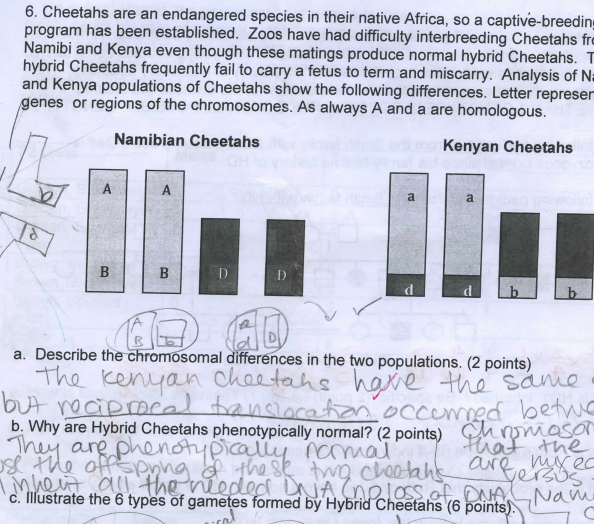 6. Cheetahs are an endangered species in their native Africa, so a captive-breedin
program has been established. Zoos have had difficulty interbreeding Cheetahs fr
Namibi and Kenya even though these matings produce normal hybrid Cheetahs. T
hybrid Cheetahs frequently fail to carry a fetus to term and miscarry. Analysis of Na
and Kenya populations of Cheetahs show the following differences. Letter represen
genes or regions of the chromosomes. As always A and a are homologous.
Namibian Cheetahs Kenyan Cheetahs
A A a a
B B D D d d b b
b
A B b a d D
a. Describe the chromosomal differences in the two populations. (2 points)
The Kenyan cheetahs have the same
but reciprocal translocation occurred betw
b. Why are Hybrid Cheetahs phenotypically normal? (2 points) Chromosom
They are phenotypically normal that the
use the offspring of these two cheetahs are mixed
versus
inherit all the needed DNA (no loss of DNA) Nam
c. Illustrate the 6 types of gametes formed by Hybrid Cheetahs (6 points).